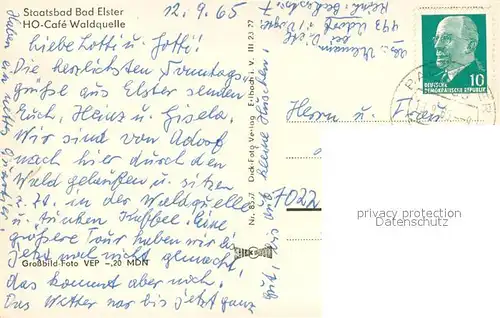 Staatsbad Bad Elster
HO-Café Waldquelle
12.9.65
Liebe Lotti u. Gotti!
Die herzlichsten Sonntags-
grüße aus Elster senden
Euch, Heinz u. Gisela.
Wir sind von Adorf
nach hier durch den
Wald gelaufen u. sitzen
z. Zt. in der Waldquelle
u. trinken Kaffee. Eine
größere Tour haben wir bis
jetzt noch nicht gemacht,
das kommt aber noch.
Das Wetter war bis jetzt ganz
Großbild-Foto VEP -,20 MDN
Nr. 8357 Dick-Foto-Verlag Erlbach i. V. III 23 27
Adorf i. Vogtl.
Herrn u. Frau
7022
DEUTSCHE
DEMOKRATISCHE REPUBLIK
10
privacy protection
Datenschutz